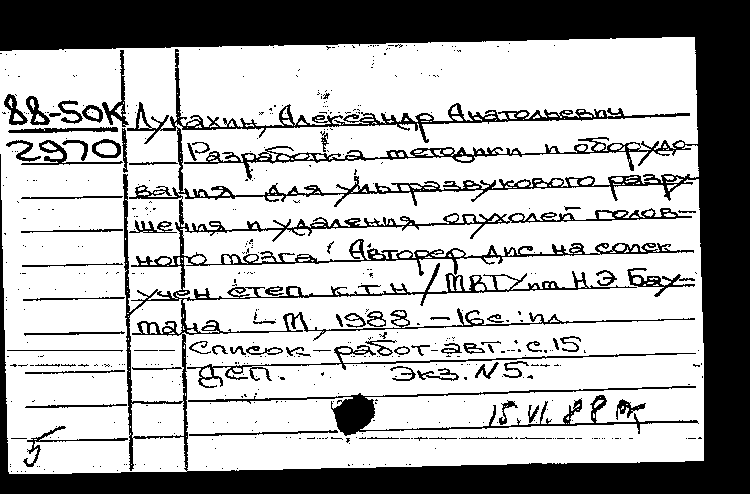 88-50К Лукахин, Александр Анатольевич
2970 Разработка методики и оборудо-
вания для ультразвукового разру-
шения и удаления опухолей голов-
ного мозга: Автореф. дис. на соиск.
учен. степ. к.т.н / МВТУ им. Н.Э. Бау-
мана. – М., 1988. – 16с.: ил
Список работ авт.: с.15.
ДСП. Экз. N5.
15.VI.88
5